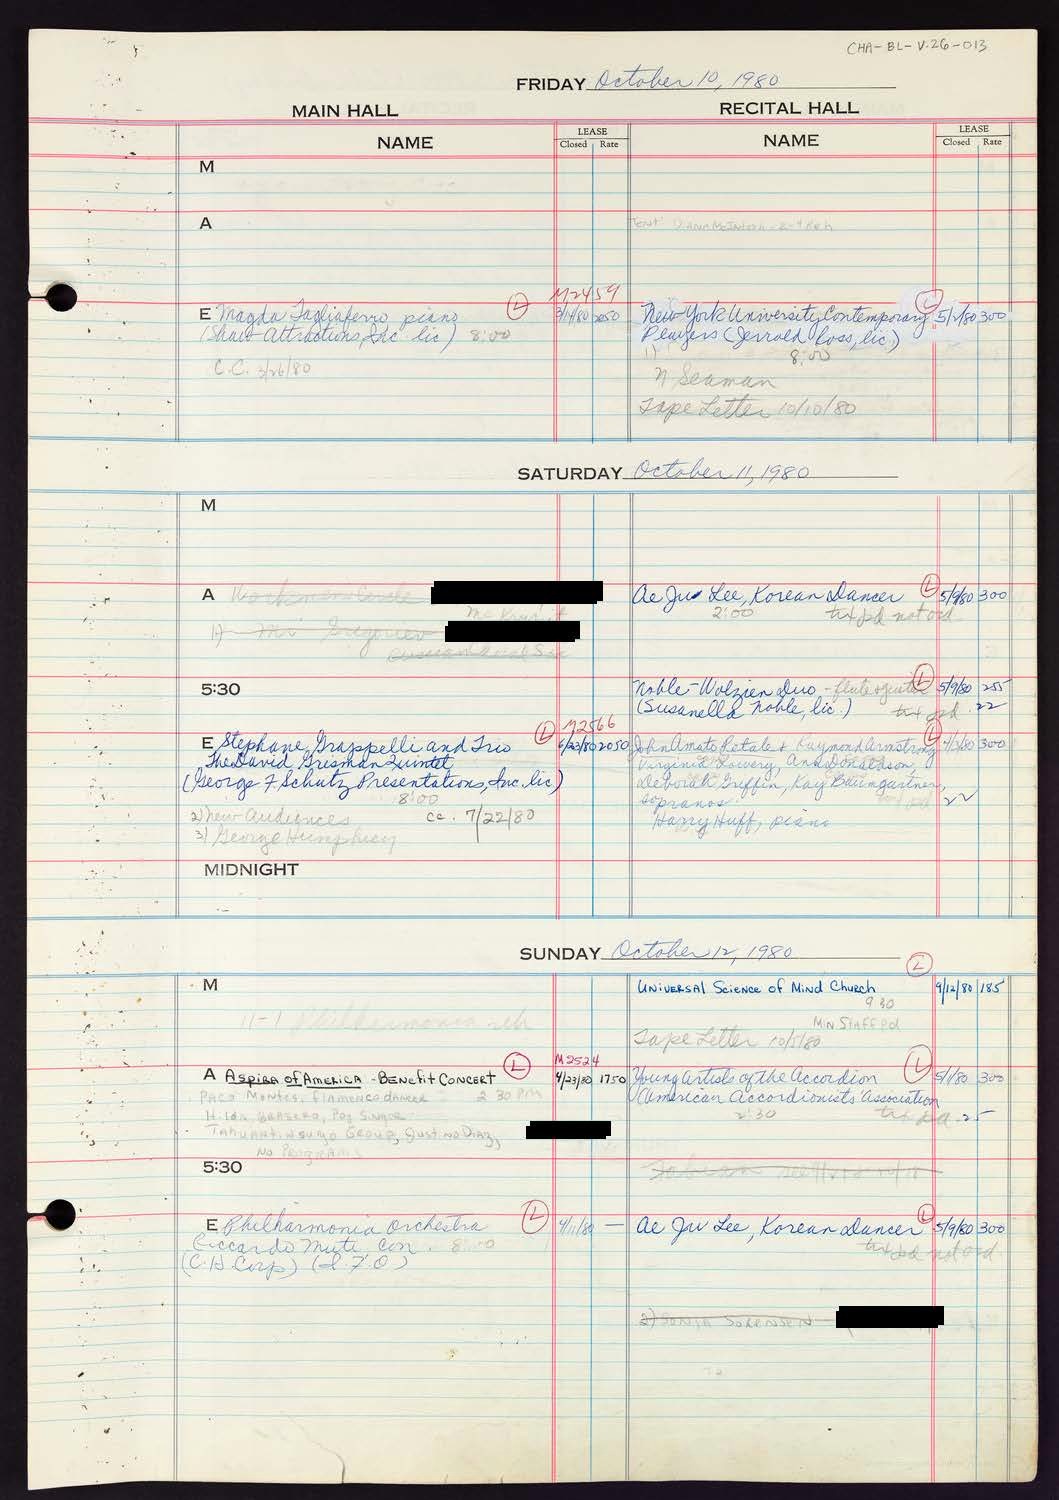 CHA-BL-V.26-013
FRIDAY October 10, 1980
MAIN HALL
RECITAL HALL
NAME
LEASE
Closed Rate
NAME
LEASE
Closed Rate
M
A
Tent
E Magda Tagliaferro piano
(Shaw Attractions, Inc. lic)
8:00
C.C. 3/26/80
L
M2459
3/14/80 2050
New York University Contemporary
Players (Jerrold Ross, lic.)
8:00
L
5/2/80 300
1)
N Seaman
Tape Letter 10/10/80
SATURDAY October 11, 1980
M
A Workmens Circle
1) Mr Gregoriev
Ae Ju Lee, Korean Dancer
2:00
txt pd not ord
L
5/9/80 300
5:30
Noble-Wolzien Duo - flute & guitar
(Susanella Noble, lic.)
txt pd
L
5/9/80 255
.22
E Stephane Grappelli and Trio
The David Grisman Quintet
(George F Schutz Presentations, Inc. lic)
8:00
L
M2566
6/23/80 2050
2) New Audiences
cc. 7/22/80
3) George Humphrey
John Amato Petale & Raymond Armstrong
Virginia Lowery, Ann Donaldson,
Deborah Griffin, Kay Baumgartner,
sopranos
Harry Huff, piano
L
300
22
MIDNIGHT
SUNDAY October 12, 1980
M
11-1 Philharmonia reh
Universal Science of Mind Church
9 30
Min Staff Pd
Tape Letter 10/5/80
L
9/12/80 185
A Aspira of America - Benefit Concert
Paco Montes, Flamenco Dancer
2 30 PM
Group, Justino Diaz,
No Programs
L
M2524
4/23/80 1750
Young Artists of the Accordion
(American Accordionists Association
2:30
txt pd .25
L
5/1/80 300
5:30
E Philharmonia Orchestra
Riccardo Muti, Con. 8:00
(C.H. Corp) (I.F.O)
L
4/11/80 —
Ae Ju Lee, Korean Dancer
txt pd not ord
L
5/9/80 300
2) Sonia Sorensen